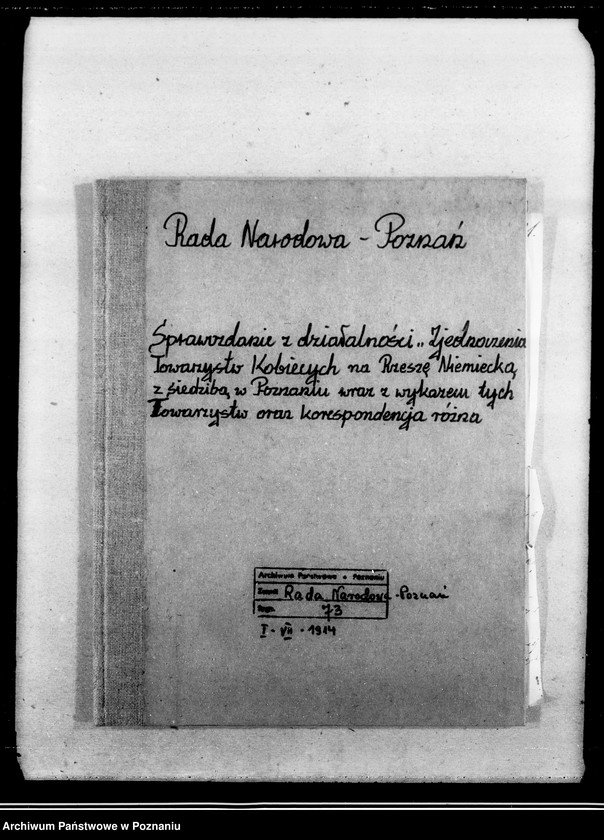 Rada Narodowa - Poznań
1.
Sprawozdanie z działalności „Zjednoczenia
Towarzystw Kobiecych na Rzeszę Niemiecką
z siedzibą w Poznaniu wraz z wykazem tych
Towarzystw oraz korespondencja różna
Archiwum Państwowe w Poznaniu
Zespół Rada Narodowa-Poznań
Sygn. 73
I - VII - 1914
Archiwum Państwowe w Poznaniu